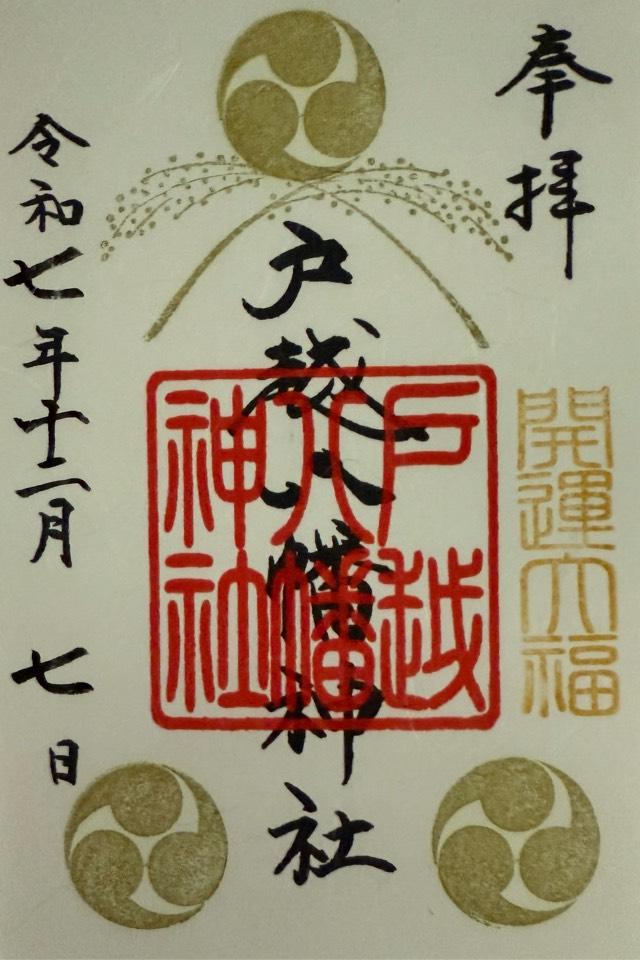 奉拝
開運大福
戸越八幡神社
戸越
八幡
神社
令和七年十二月 七日